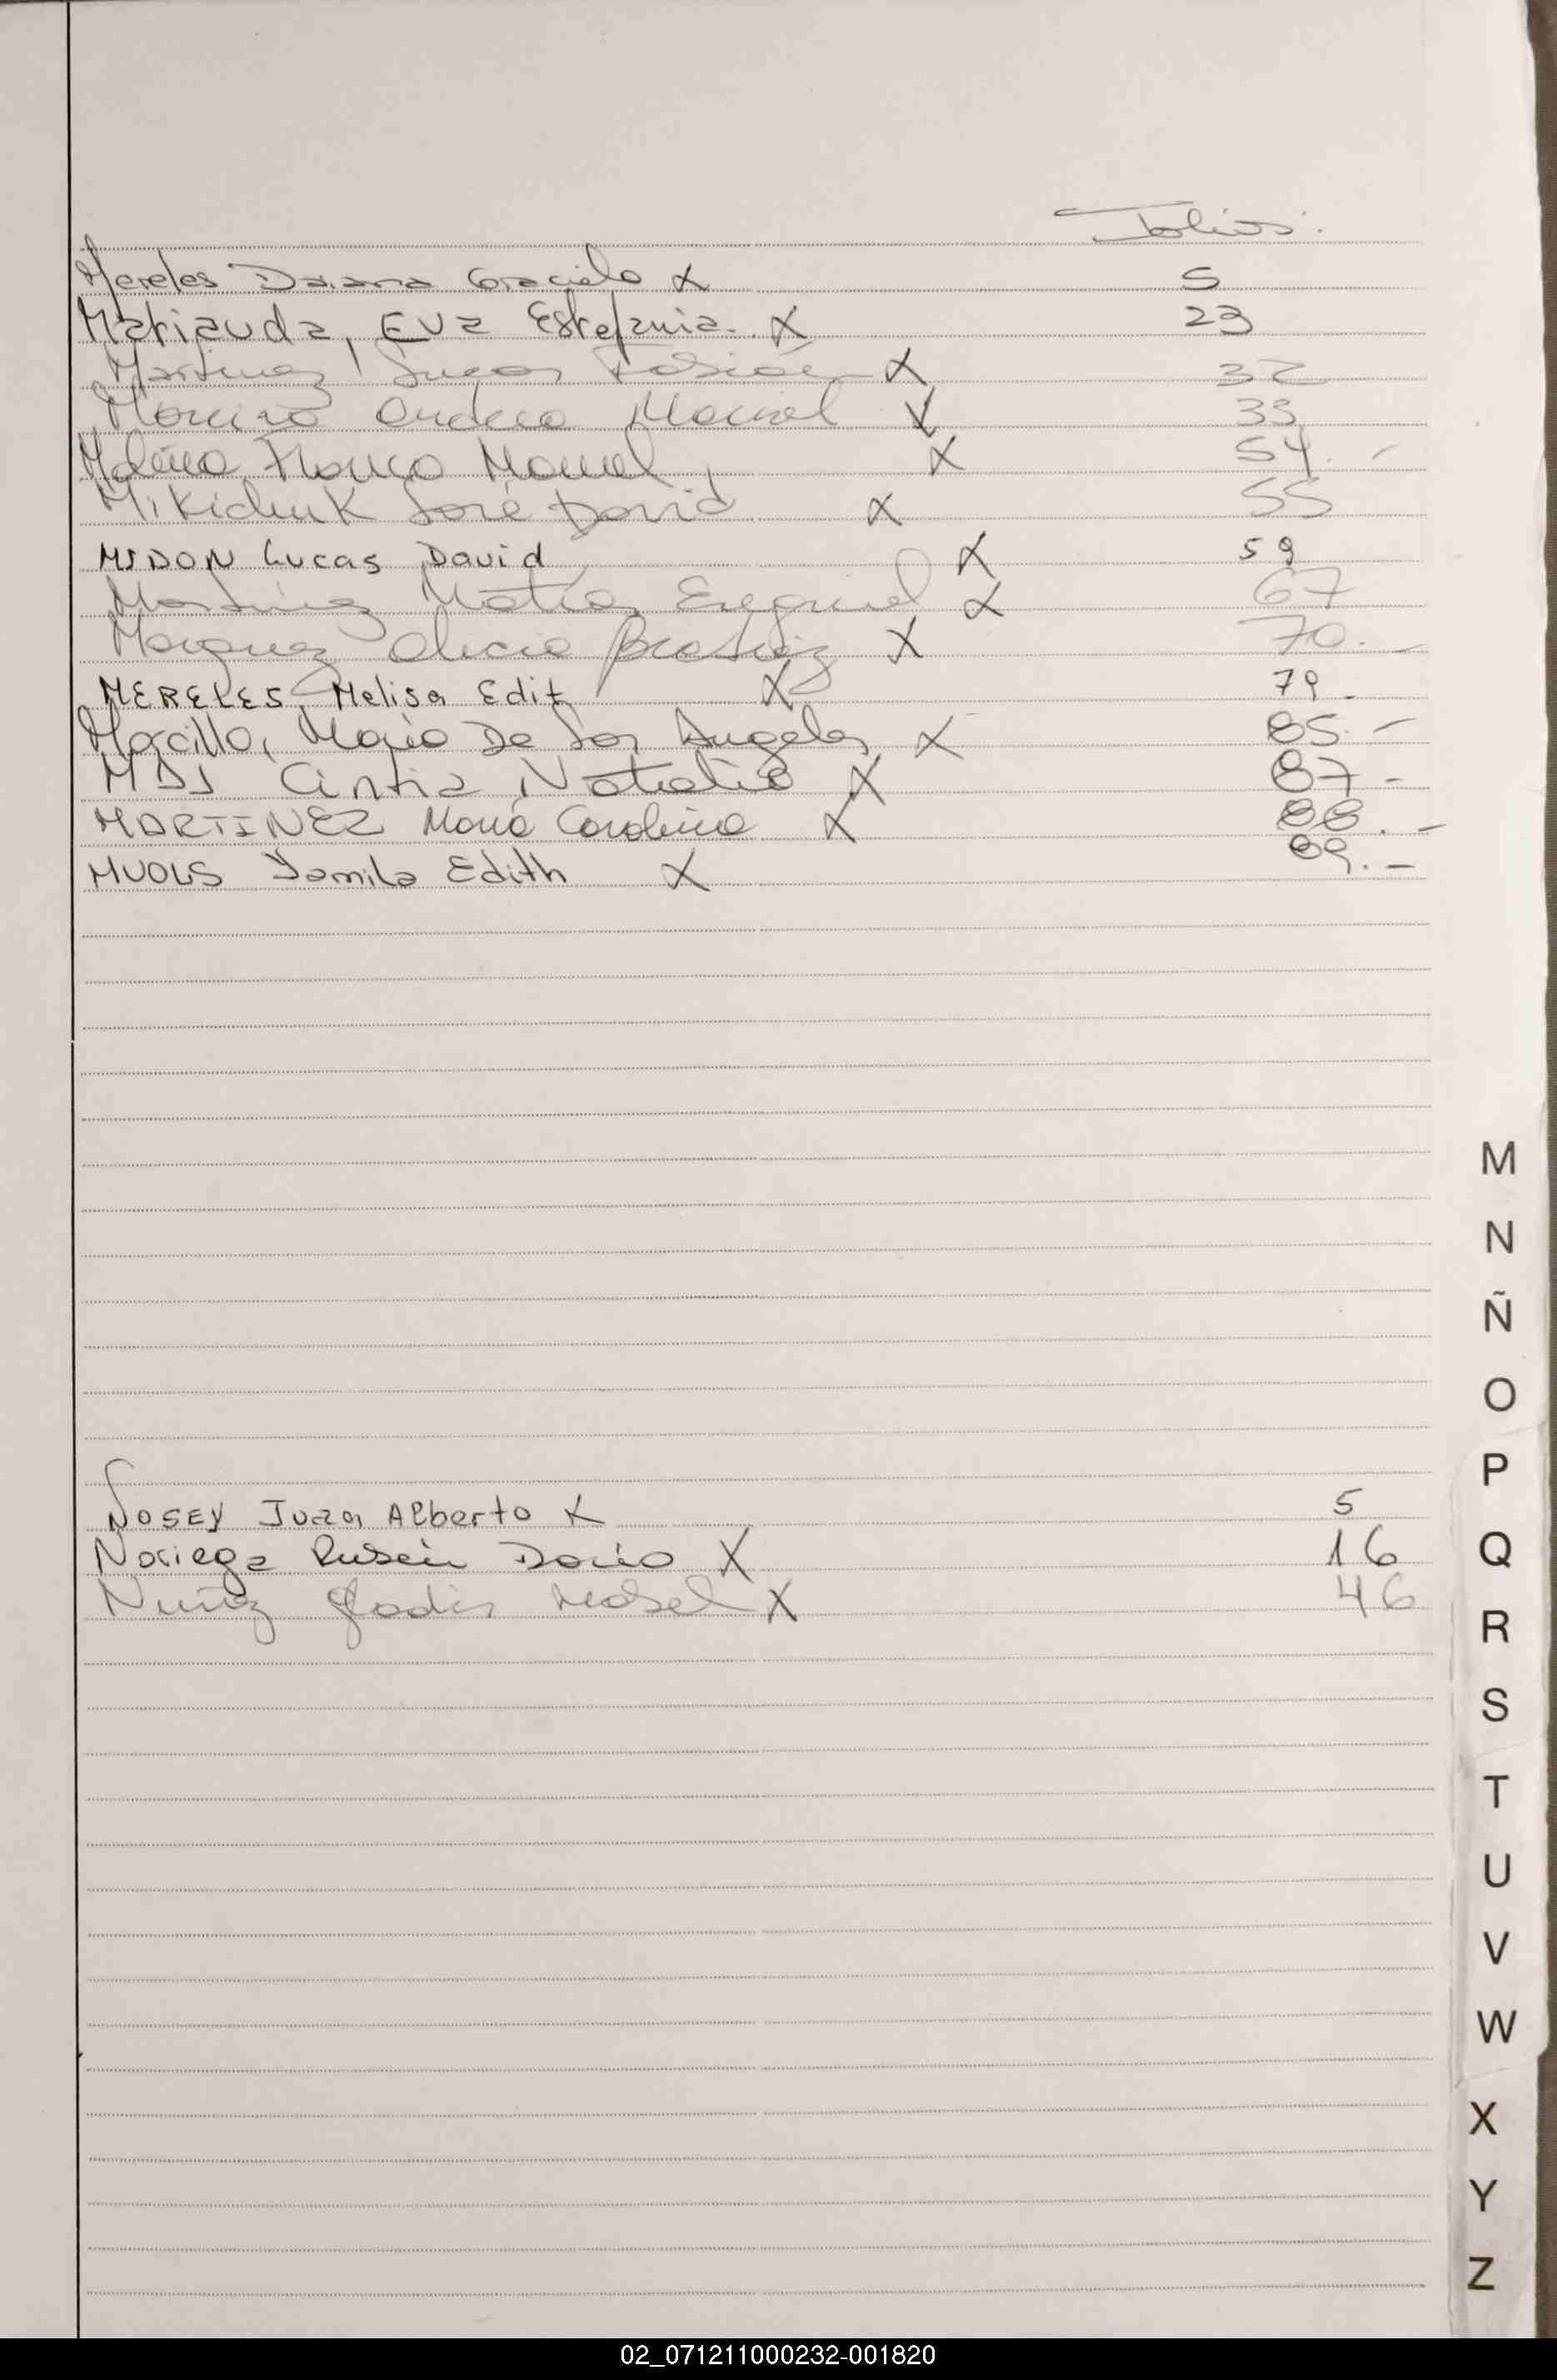 Folios:
Mereles Daiana Graciela X 5
Matiauda, Eva Estefania. X 23
Martinez Lucas Fabián X 32
Moreira Andrea Maricel X 33
Molina Franco Manuel X 54. -
Mikichuk José David X 55
MIDON Lucas David X 59
Martinez Matías Ezequiel X 67
Marquez Alicia Beatriz X 70. -
MERELES, Melisa Edit X 79 -
Morcillo, María De Los Angeles X 85. -
Cintia Natalia X 87 -
MARTINEZ María Carolina X 88. -
Yamila Edith X 89. -
NOSEY Juan Alberto X 5
Noriega Rubén Darío X 16
Nuñez Gladis Mabel X 46
M
N
Ñ
O
P
Q
R
S
T
U
V
W
X
Y
Z
02_071211000232-001820